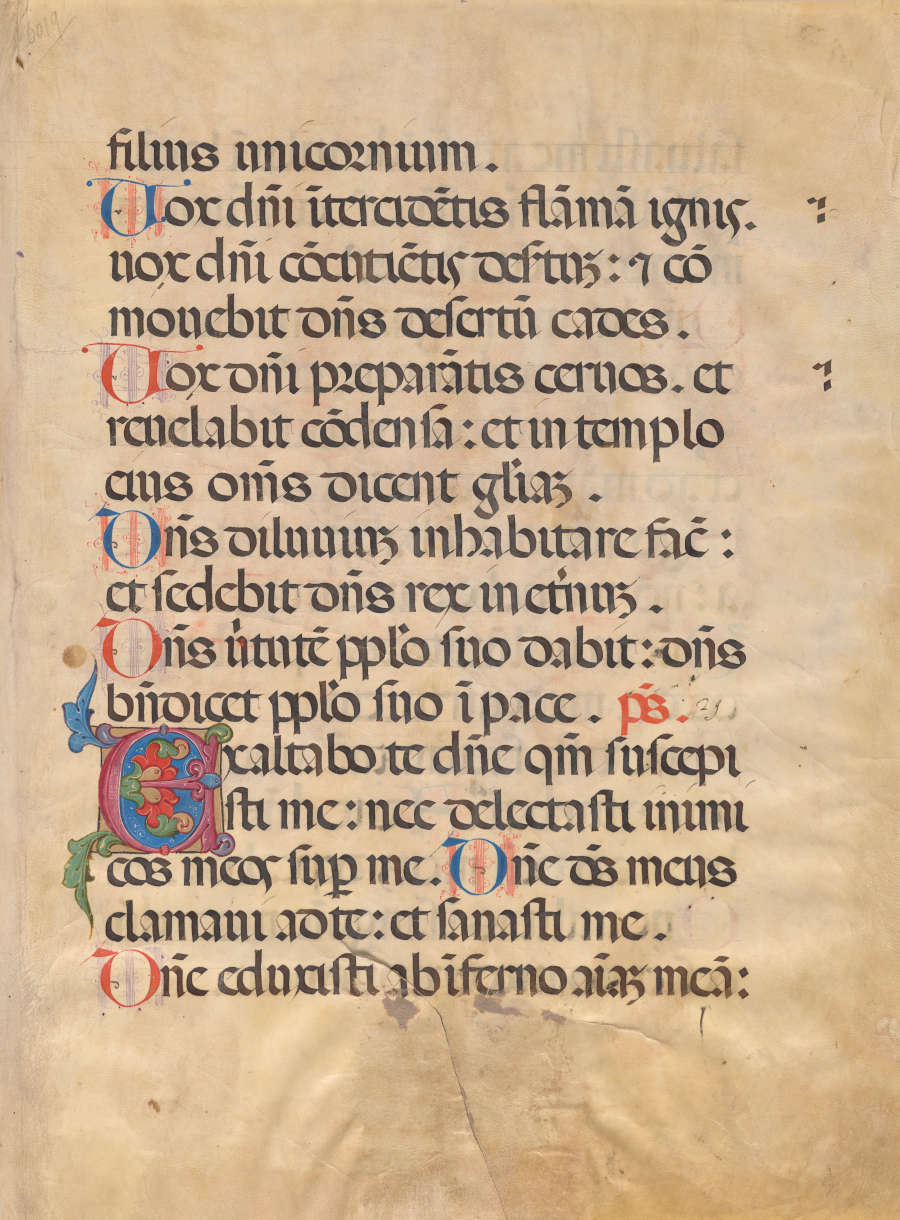 6019
filius unicornium.
Uox dñi ĩtercidẽtis flãmã ignis.
uox dñi cõcutiẽtis desertuꝫ: ⁊ cõ
mouebit dñs desertũ cades.
Uox dñi preparãtis ceruos. et
reuelabit cõdensa: et in templo
eius oms̃ dicent gl'iaꝫ.
Dñs diluuiuꝫ inhabitare fac̃:
et sedebit dñs rex in et'nuꝫ.
Dñs ũtutẽ ppl'o suo dabit: dñs
bñdicet ppl'o suo ĩ pace. ps̃.
Exaltabo te dñe qm̃ suscepi
sti me: nec delectasti inimi
cos meos suꝑ me. Dñe ds̃ meus
clamaui ad te: et sanasti me.
Dñe eduxisti ab ĩferno aĩaꝫ meã: